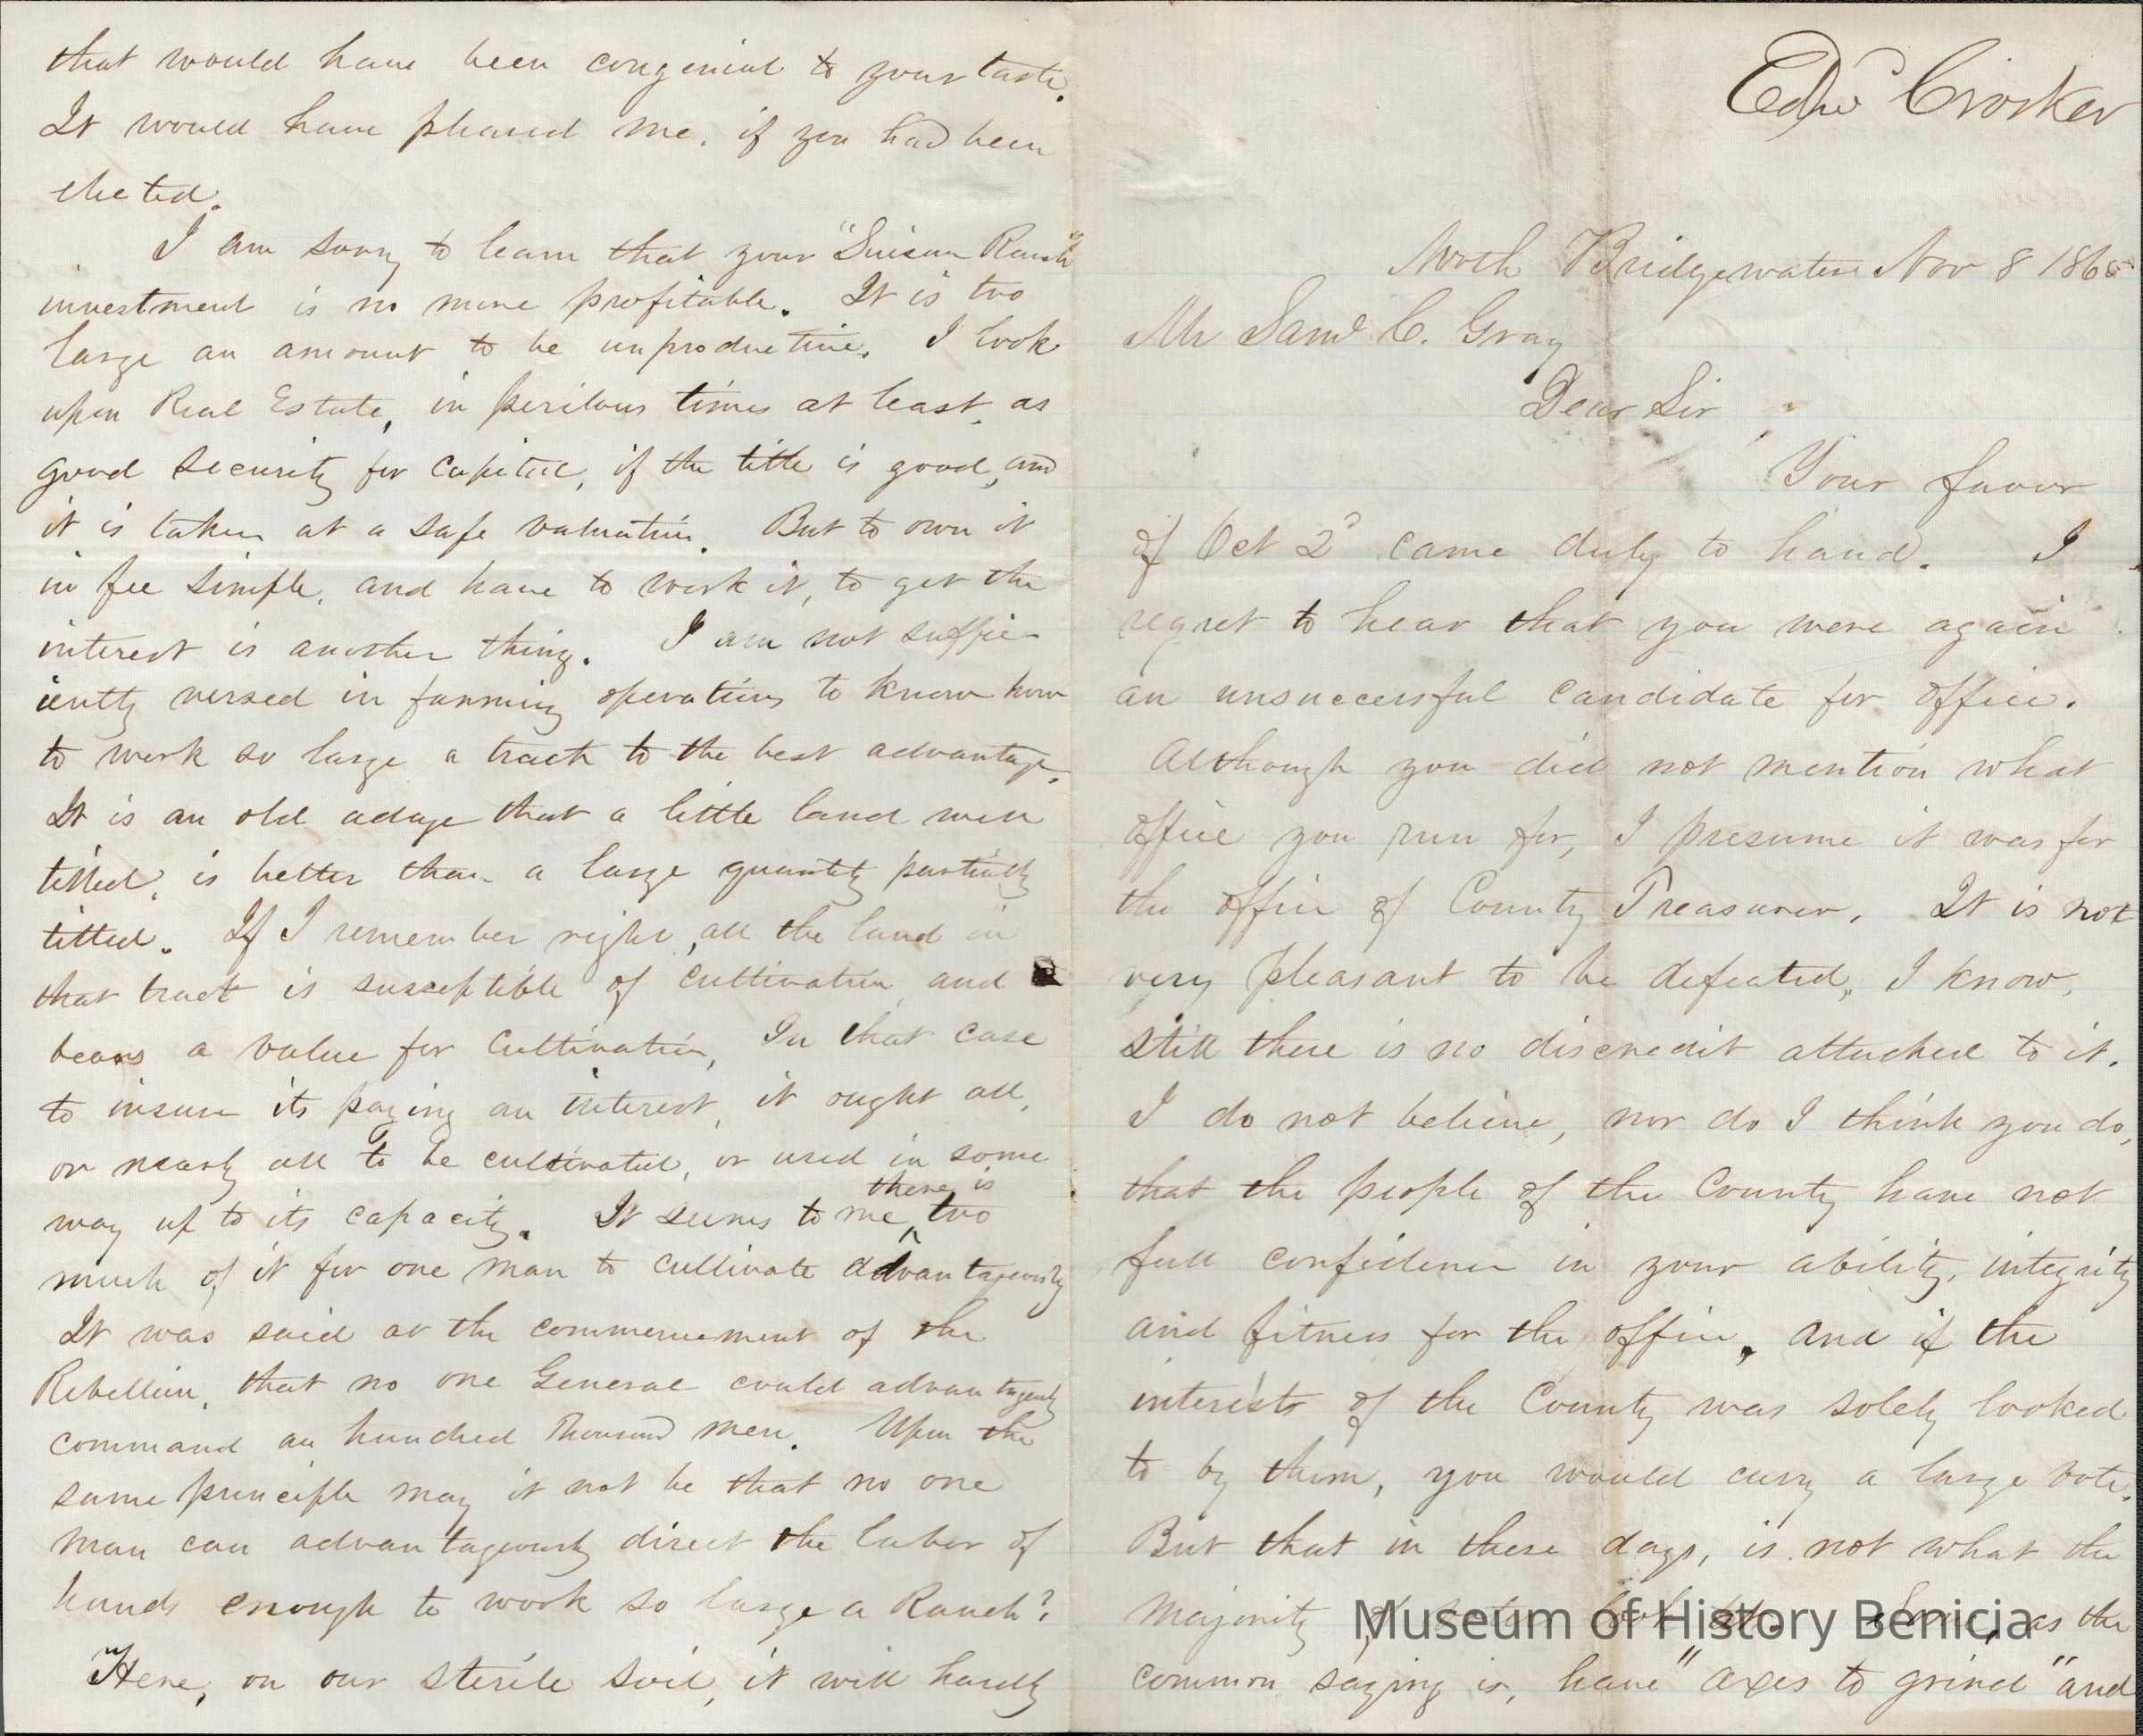 that would have been congenial to your taste.
It would have pleased me, if you had been
elected.
I am sorry to learn that your "Suisun Ranch"
investment is no more profitable. It is too
large an amount to be unproductive. I look
upon Real Estate, in perilous times at least, as
good security for capital, if the title is good, and
it is taken at a safe valuation. But to own it
in fee simple, and have to work it, to get the
interest is another thing. I am not suffic-
iently versed in farming operations to know how
to work so large a track to the best advantage.
It is an old adage that a little land well
tilled, is better than a large quantity partially
tilled. If I remember right, all the land in
that tract is susceptible of cultivation, and
bears a value for cultivation, In that case
to insure its paying an interest, it ought all,
or nearly all to be cultivated, or used in some
way up to its capacity. It seems to me, there is too
much of it for one man to cultivate advantageously
It was said at the commencement of the
Rebellion, that no one General could advantageously
command an hundred Thousand men. Upon the
same principle may it not be that no one
man can advantageously direct the labor of
hands enough to work so large a Ranch?
Here, on our sterile soil, it will hardly
Edw Crocker
North Bridgewater Nov 8 1865
Mr Saml C. Gray
Dear Sir
Your favor
of Oct 2d came duly to hand. I
regret to hear that you were again
an unsuccessful candidate for office.
Although you did not mention what
office you run for, I presume it was for
the office of County Treasurer. It is not
very pleasant to be defeated, I know,
still there is no discredit attached to it.
I do not believe, nor do I think you do,
that the people of the County have not
full confidence in your ability, integrity
and fitness for the office, and if the
interests of the County was solely looked
to by them, you would carry a large vote.
But that in these days, is not what the
Majority of look at. as the
common saying is, have "axes to grind" and
Museum of History Benicia